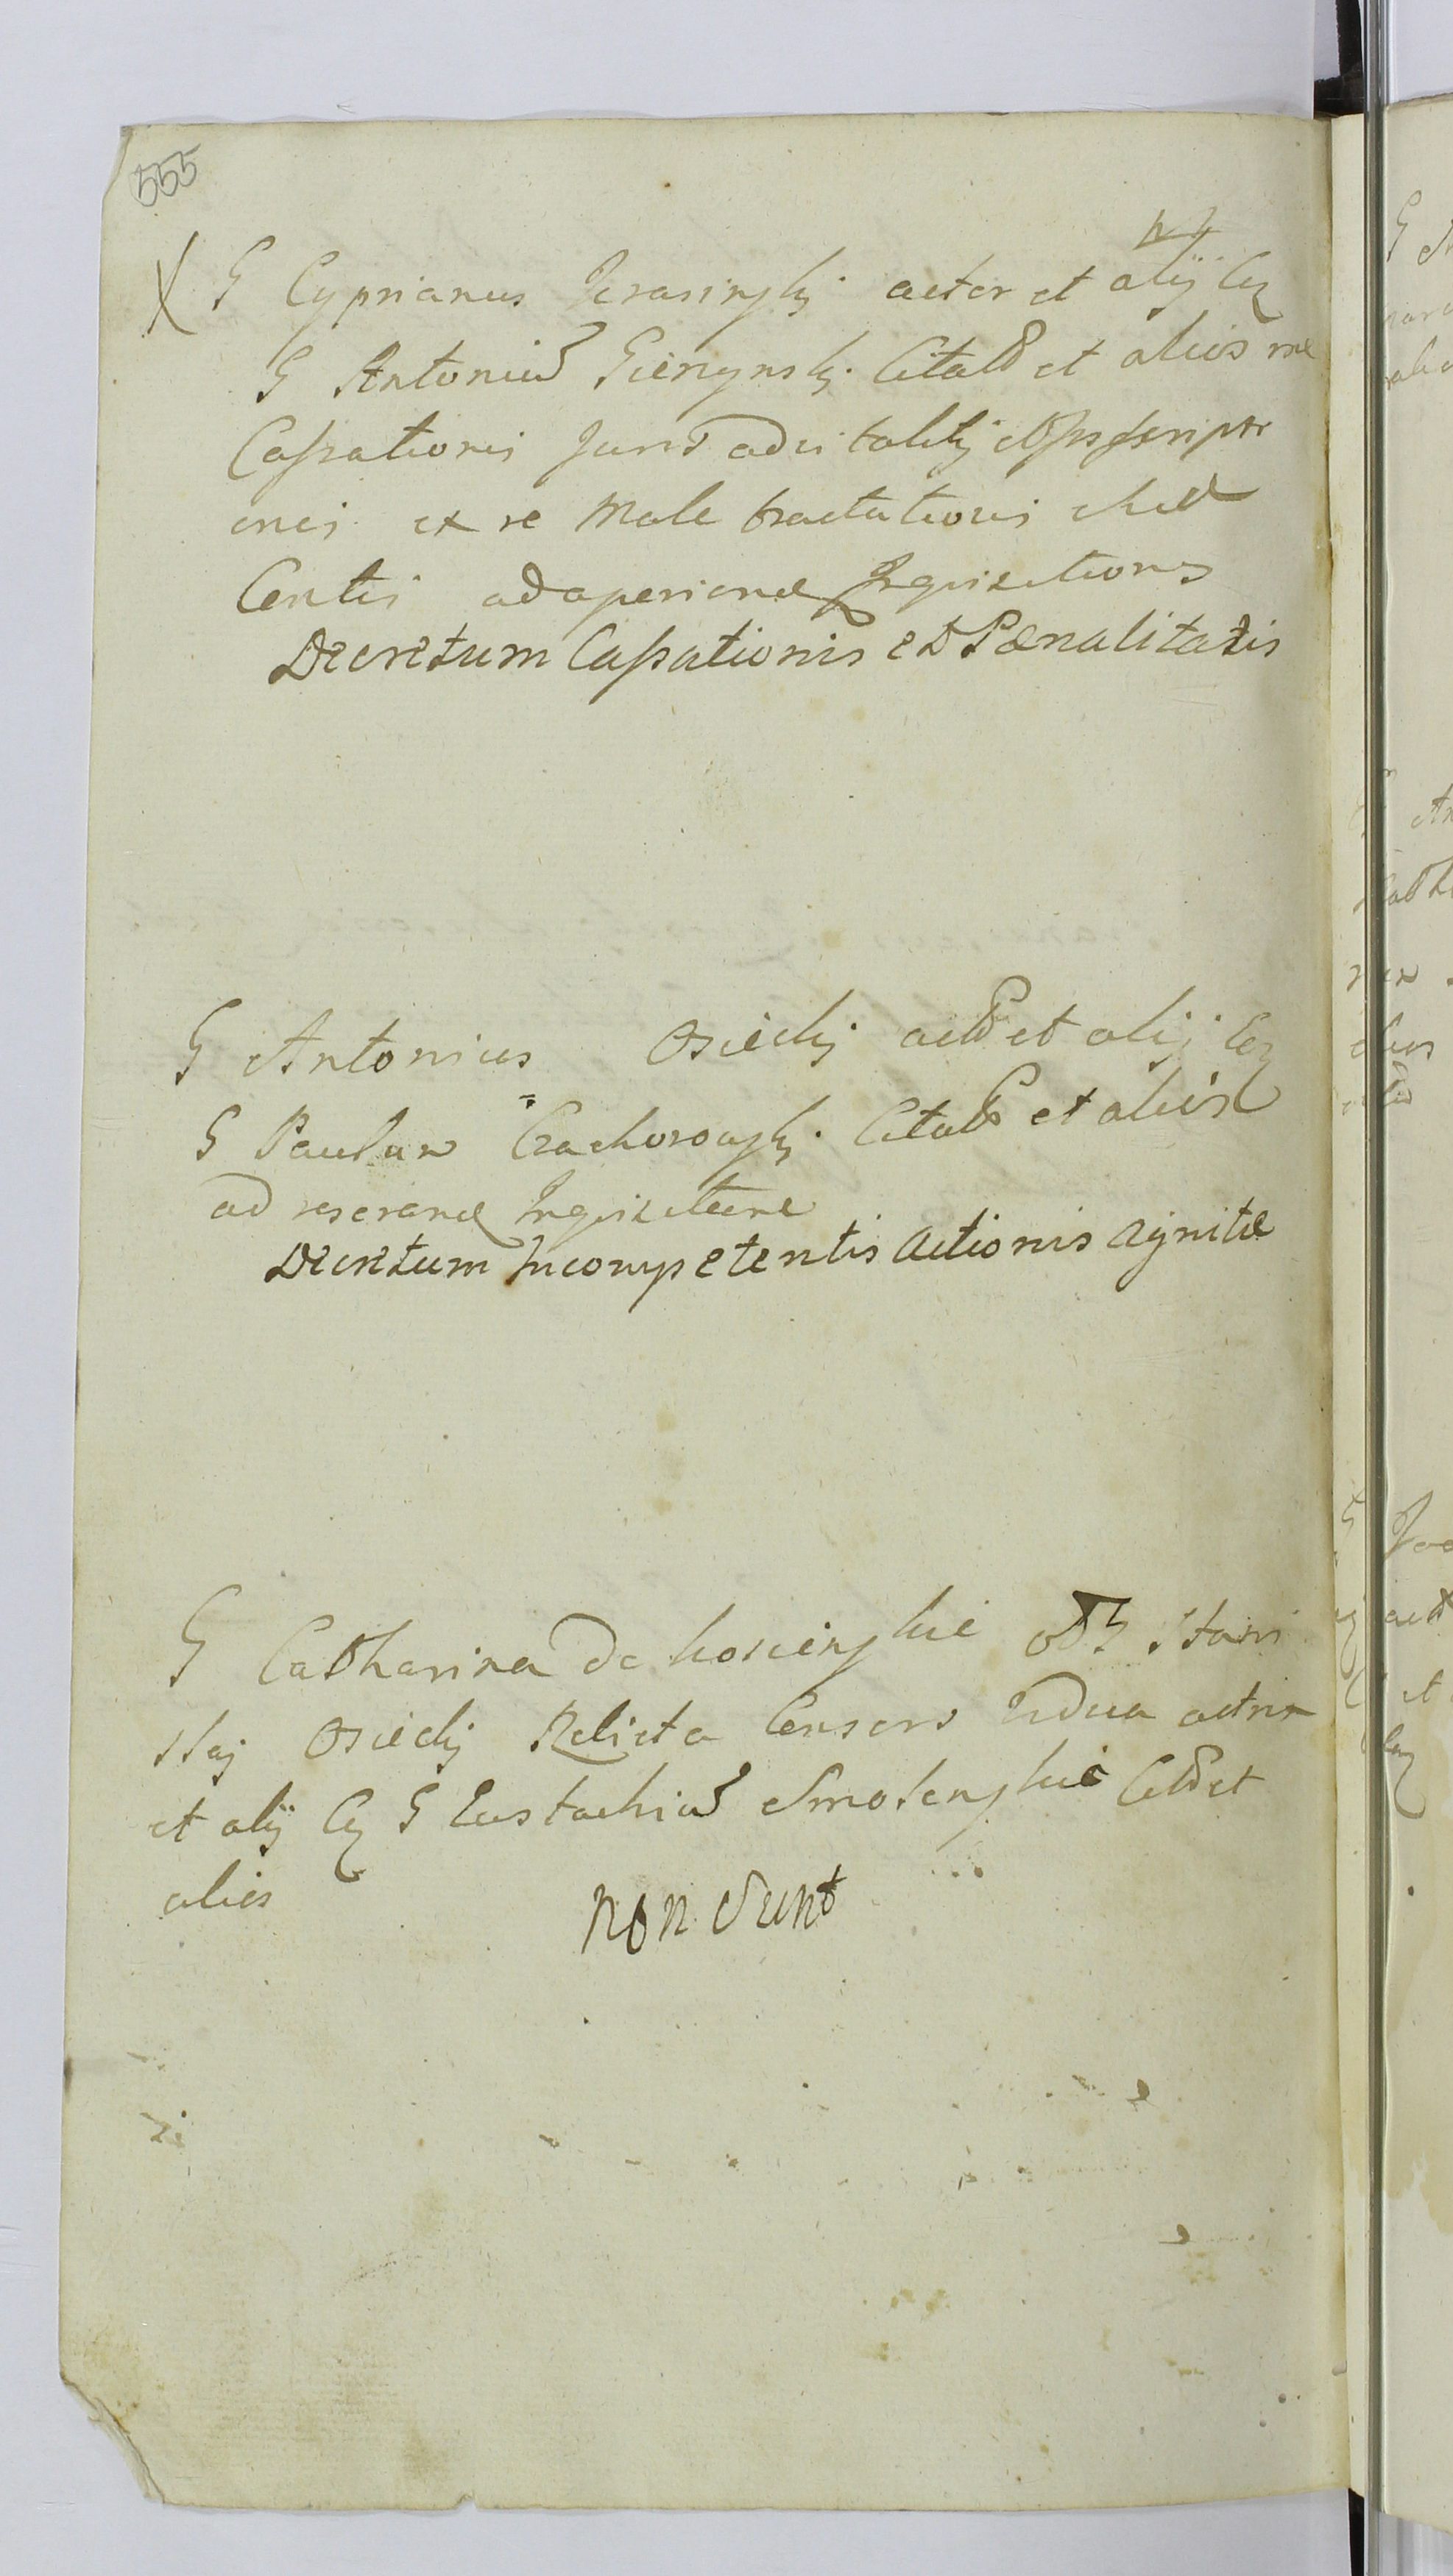 555
X G Cyprianus Krasinskj actor et alij Cz
G Antoniu Gienynskj Citatt et alios rne
Cassationis Juris advitalitj
onei ex re Male tractationis
Centis adaperiend Inqvizitions
Decretum Cassationis et Pænalitatis
G Antonius Osieckj actt et alij Cz
G Paulum Czachorowskj Citatt et alios
ad reserand Inqvizitione
Decretum Incompetentis actionis agnitæ
G Catharina de koscienskie Stani
slaj Osieckj Relicta Consors Vidua actrix
et alij Cz G Eustachiu Smolenskie Citt et
alios
non sunt